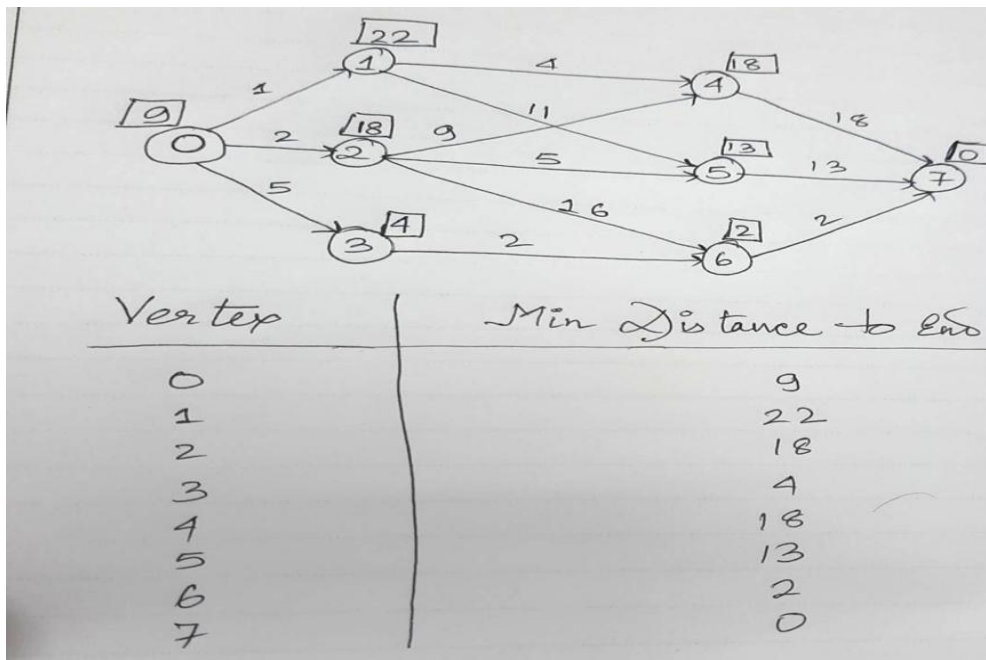 22
1
4
18
4
1
11
18
9
0
2
18
2
9
5
13
5
13
0
7
5
16
3
4
2
2
6
2
Vertex Min Distance to End
0 9
1 22
2 18
3 4
4 18
5 13
6 2
7 0